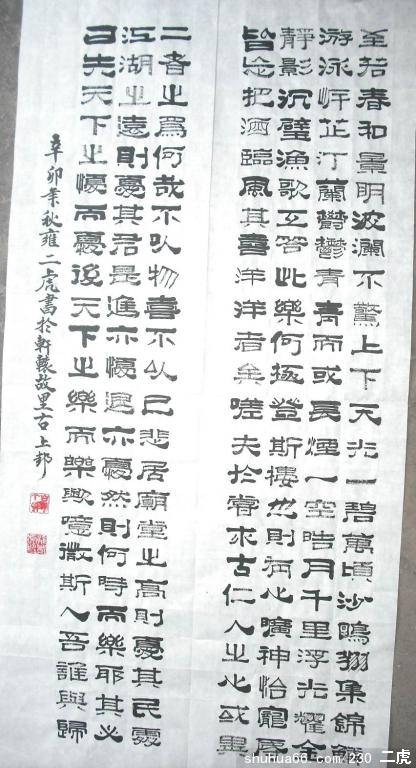 至若春和景明波瀾不驚上下天光一碧萬頃沙鷗翔集錦鱗
游泳岸芷汀蘭鬱鬱青青而或長煙一空皓月千里浮光耀金
靜影沉璧漁歌互答此樂何極登斯樓也則有心曠神怡寵辱
皆忘把酒臨風其喜洋洋者矣嗟夫於嘗求古仁人之心或異
二者之爲何哉不以物喜不以己悲居廟堂之高則憂其民處
江湖之遠則憂其君是進亦憂退亦憂然則何時而樂耶其必
曰先天下之憂而憂後天下之樂而樂歟噫微斯人吾誰與歸
辛卯年秋雍二虎書於軒轅故里古上邽
shuhua66.com/230 二虎